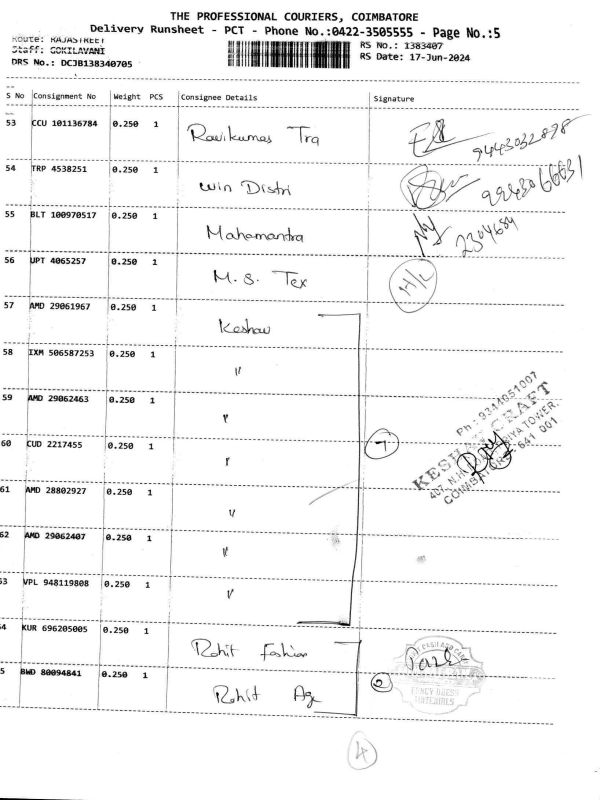 THE PROFESSIONAL COURIERS, COIMBATORE
Delivery Runsheet - PCT - Phone No.:0422-3505555 - Page No.:5
Route: RAJASTREET
Staff: GOKILAVANI
DRS No.: DCJB138340705
RS No.: 1383407
RS Date: 17-Jun-2024
S No Consignment No Weight PCS Consignee Details Signature
53 CCU 101136784 0.250 1 Ravikumar Tra 9443032898
54 TRP 4538251 0.250 1 Win Distri
55 BLT 100970517 0.250 1 Mahamantra 2304684
56 UPT 4065257 0.250 1 M.S. Tex H/L
57 AMD 29061967 0.250 1 Keshav
58 IXM 506587253 0.250 1 "
59 AMD 29062463 0.250 1 "
60 CUD 2217455 0.250 1 " 7
61 AMD 28802927 0.250 1 "
62 AMD 29062407 0.250 1 "
63 VPL 948119808 0.250 1 "
Ph : 9344051007
KESHAV CRAFT
COIMBATORE - 641 001
64 KUR 696205005 0.250 1 Rohit Fashion
65 BWD 80094841 0.250 1 Rohit Age 2
FANCY DRESS
MATERIALS
4